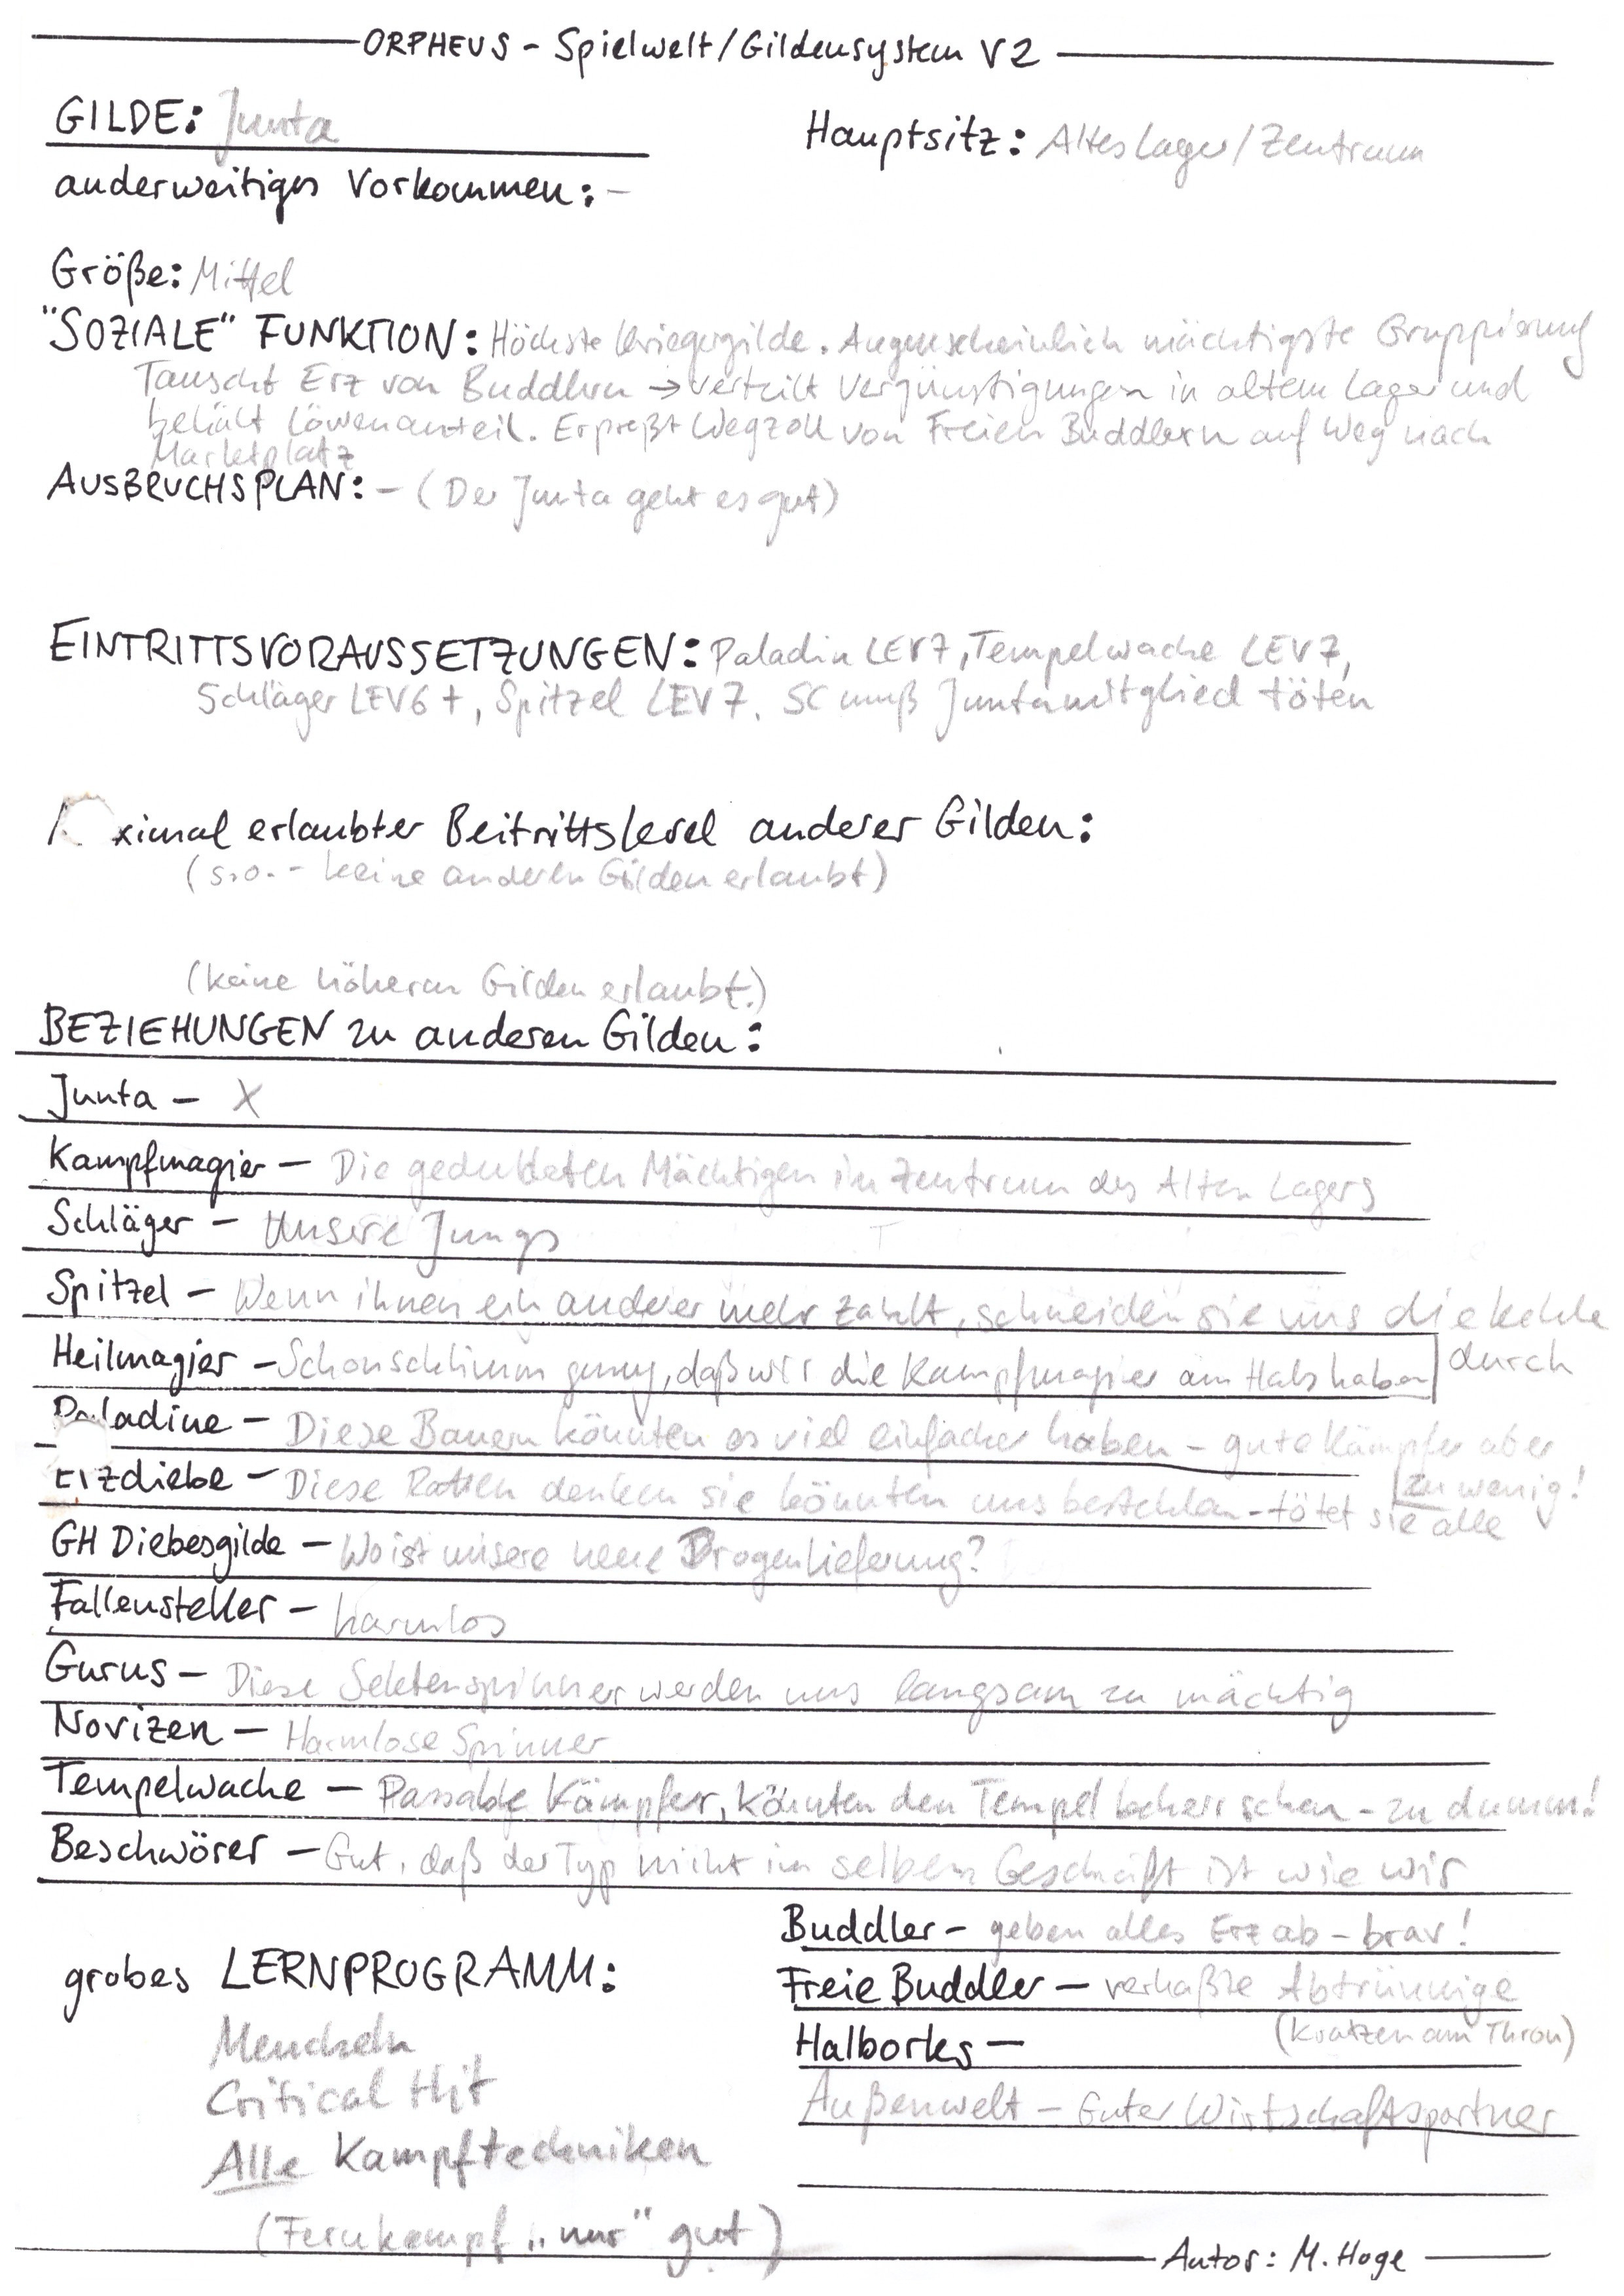 ORPHEUS - Spielwelt/Gildensystem V2
GILDE: Junta
Hauptsitz: Altes Lager/Zentrum
anderweitiges Vorkommen: -
Größe: Mittel
"SOZIALE" FUNKTION: Höchste Kriegergilde. Augenscheinlich mächtigste Gruppierung
Tauscht Erz von Buddlern → verteilt Vergünstigungen in altem Lager und
behält Löwenanteil. Erpreßt Wegzoll von Freien Buddlern auf Weg nach
Marktplatz
AUSBRUCHSPLAN: - (Der Junta geht es gut)
EINTRITTSVORAUSSETZUNGEN: Paladin LEV7, Tempelwache LEV7,
Schläger LEV6+, Spitzel LEV7. SC muß Juntamitglied töten
ximal erlaubter Beitrittslevel anderer Gilden:
(s.o. - keine anderen Gilden erlaubt)
(keine höheren Gilden erlaubt.)
BEZIEHUNGEN zu anderen Gilden:
Junta - X
Kampfmagier - Die geduldeten Mächtigen im Zentrum des Alten Lagers
Schläger - Unsere Jungs
Spitzel - Wenn ihnen ein anderer mehr zahlt, schneiden sie uns die Kehle
durch
Heilmagier - Schon schlimm genug, daß wir die Kampfmagier am Hals haben
Paladine - Diese Bauern könnten es viel einfacher haben - gute Kämpfer aber
zu wenig!
Erzdiebe - Diese Ratten denken sie könnten uns bestehlen - tötet sie alle
GH Diebesgilde - Wo ist unsere neue Drogenlieferung?
Fallensteller - harmlos
Gurus - Diese Sektenspinner werden uns langsam zu mächtig
Novizen - Harmlose Spinner
Tempelwache - Passable Kämpfer, könnten den Tempel beherrschen - zu dumm!
Beschwörer - Gut, daß der Typ nicht im selben Geschäft ist wie wir
Buddler - geben alles Erz ab - brav!
Freie Buddler - verhaßte Abtrünnige
(Kratzen am Thron)
Halborks -
Außenwelt - Guter Wirtschaftspartner
grobes LERNPROGRAMM:
Meucheln
Critical Hit
Alle Kampftechniken
(Fernkampf „nur" gut)
Autor: M. Hoge